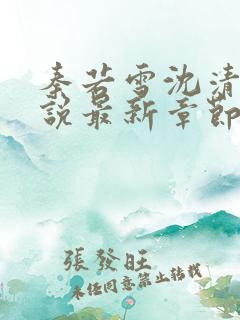 秦若雪沈清
说最新章節
張發旺
未经同意禁止转载